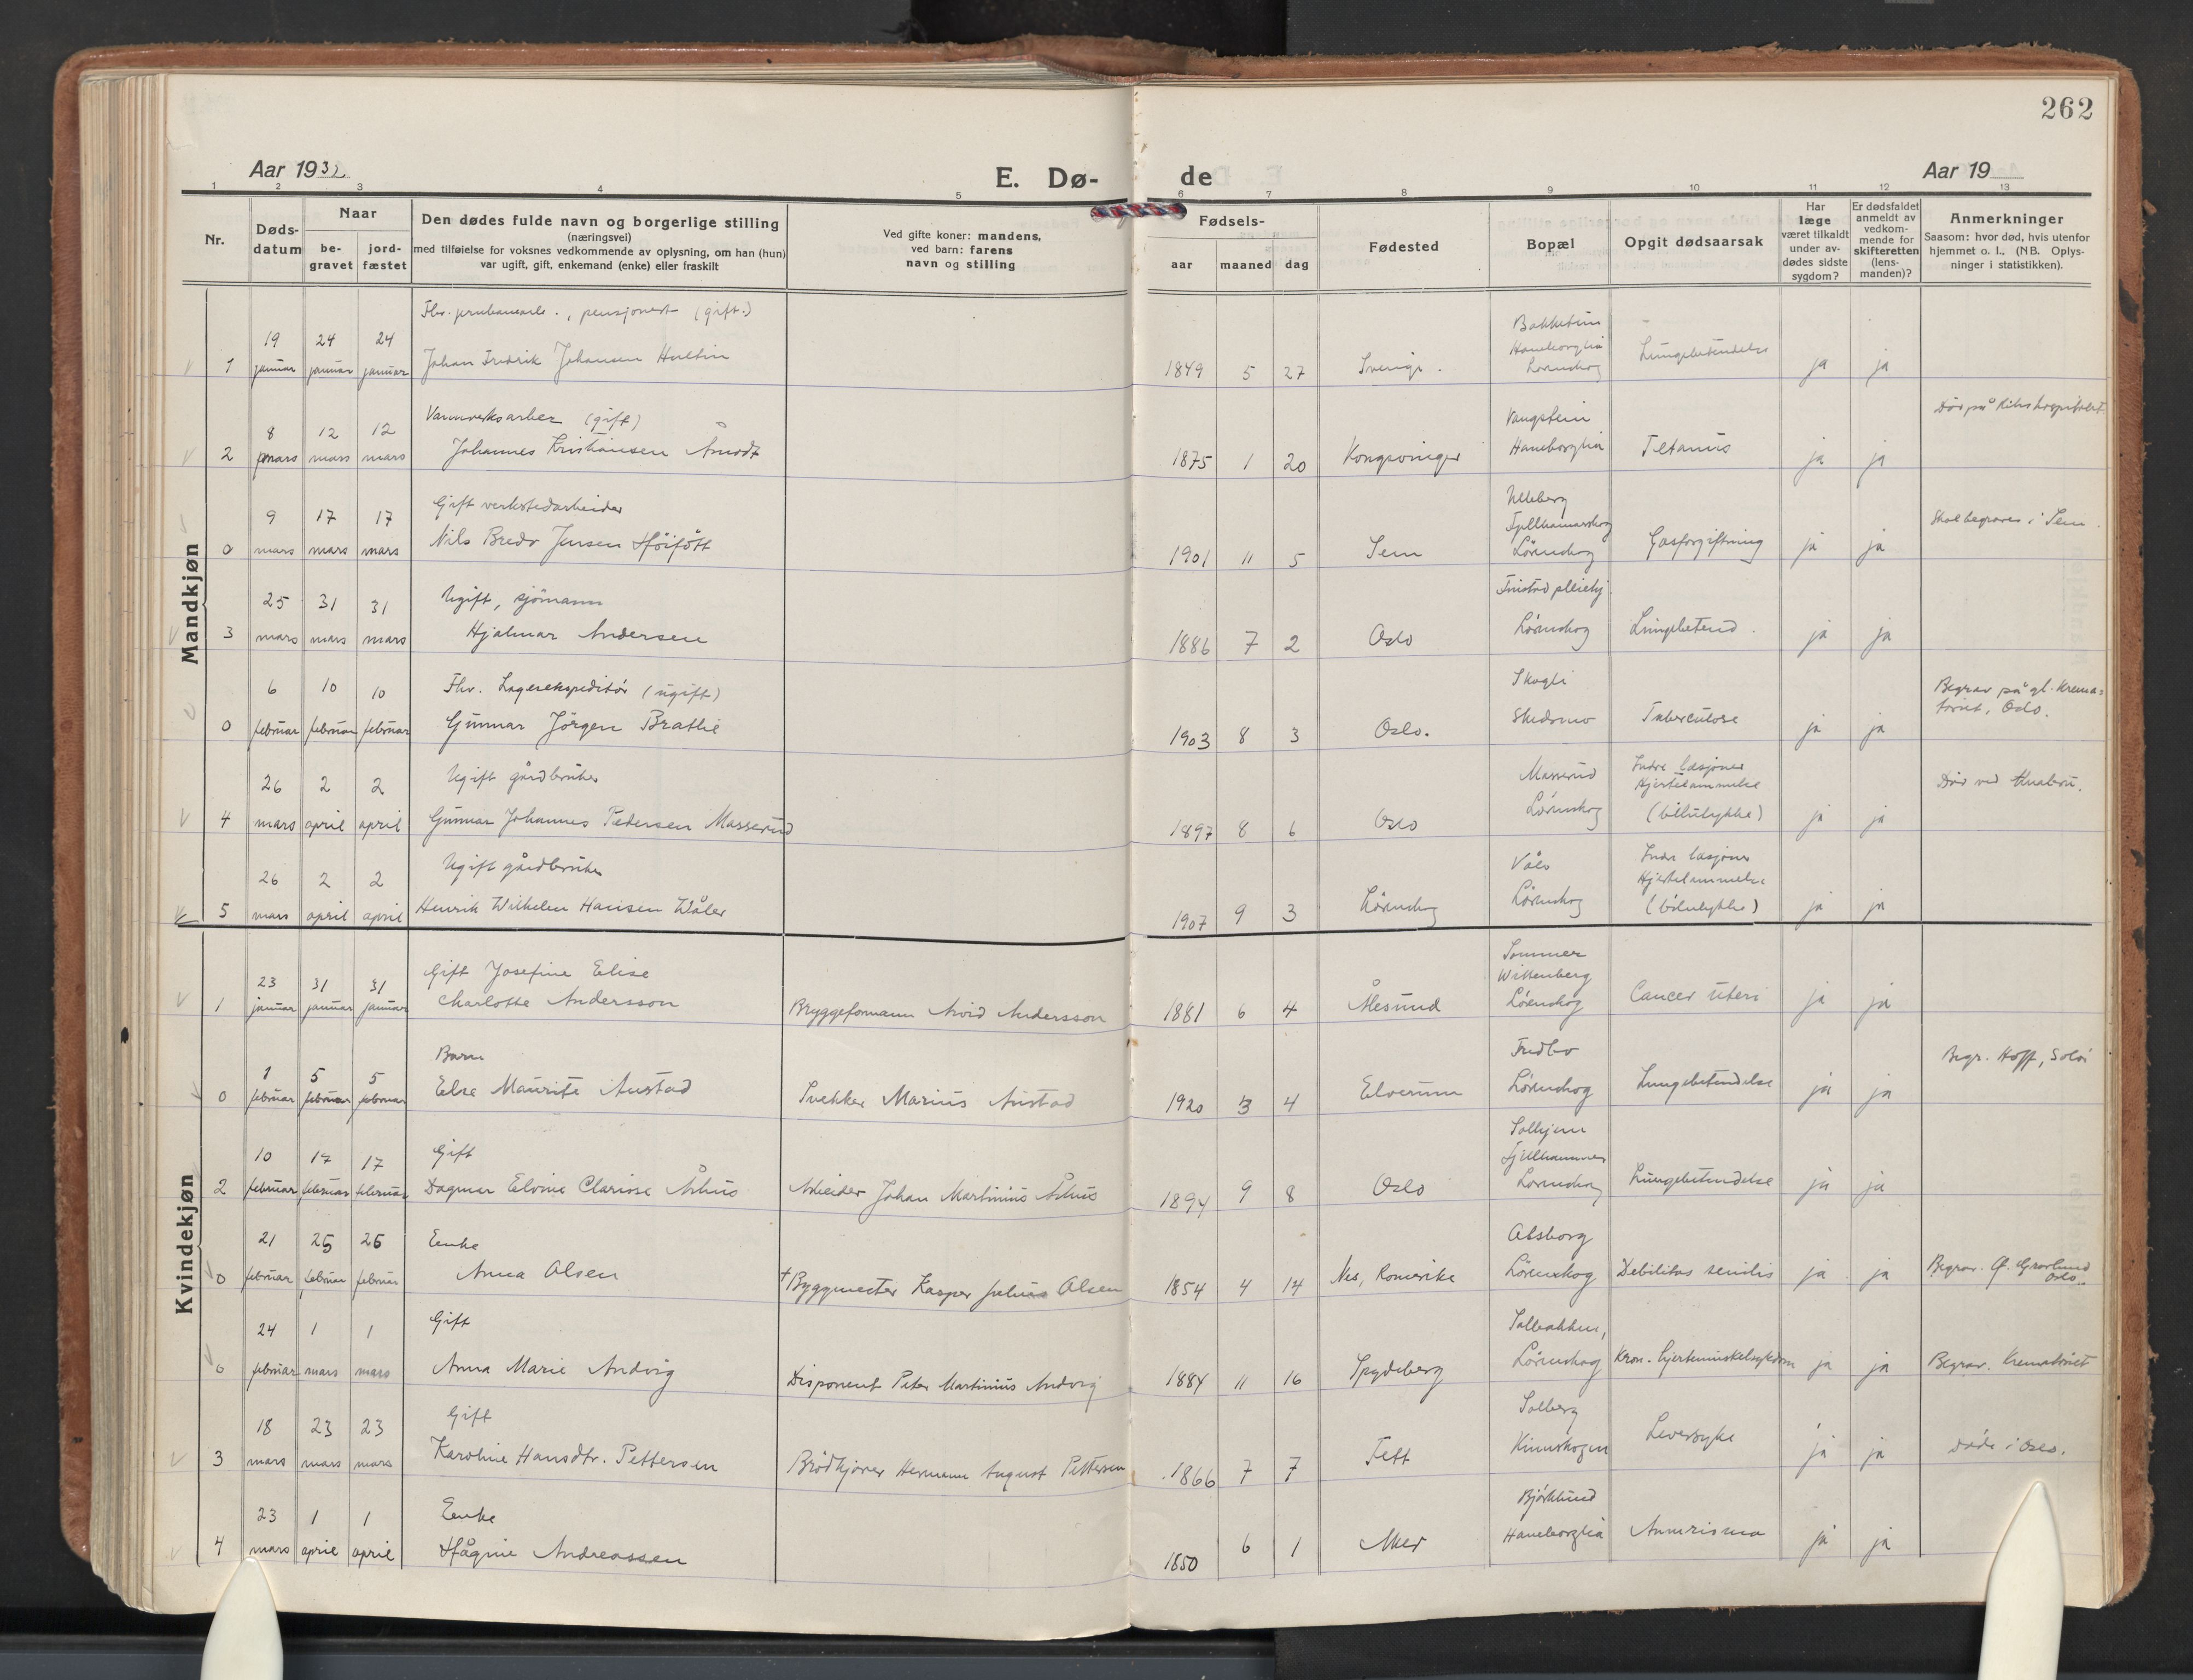 262
Aar 1932
E. Dø-
de
Aar 19
1 2 3 4 5 6 7 8 9 10 11 12 13
Nr.
Døds-
datum
Naar
be-
gravet
jord-
fæstet
Den dødes fulde navn og borgerlige stilling
(næringsvei)
med tilføielse for voksnes vedkommende av oplysning, om han (hun)
var ugift, gift, enkemand (enke) eller fraskilt
Ved gifte koner: mandens,
ved barn: farens
navn og stilling
Fødsels-
aar maaned dag
Fødested
Bopæl
Opgit dødsaarsak
Har
læge
været tilkaldt
under av-
dødes sidste
sygdom?
Er dødsfaldet
anmeldt av
vedkom-
mende for
skifteretten
(lens-
manden)?
Anmerkninger
Saasom: hvor død, hvis utenfor
hjemmet o. l., (NB. Oplys-
ninger i statistikken).
Mandkjøn
Fhv. , pensjonert (gift.)
19 24 24 Bakketun
Haneborglia
1 januar januar januar Johan Fredrik Johansen Hultin 1849 5 27 Sverige. Lørenskog Lungebetendelse ja ja
Vannverksarbei (gift) Vangstein Død på Rikshospitalet.
8 12 12
2 mars mars mars Johannes Kristiansen Åmodt 1875 1 20 Kongsvinger Haneborglia Tetanus ja ja
Gift verkstedarbeider Ulleberg
9 17 17 Fjellhamarskog Skal begraves i Sem.
0 mars mars mars Nils Bredo Jensen Høifött 1901 11 5 Sem Lörenskog Gasforgiftning ja ja
25 31 31 Ugift, sjömann Finstad pleiehj.
3 mars mars mars Hjalmar Andersen 1886 7 2 Oslo Lörenskog Lungebetend. ja ja
6 10 10 Fhv. Lagerekspeditör (ugift) Skogli Begrav på gl. Krema-
0 februar februar februar Gunnar Jörgen Bratlie 1903 8 3 Oslo. Skedsmo Tuberculose ja ja toriet, Oslo.
26 2 2 Ugift gårdbruker Masserud Indre læsjoner
Hjertelammelse Död ved Alnabru.
4 mars april april Gunnar Johannes Pedersen Masserud 1897 8 6 Oslo Lörenskog (bilulykke) ja ja
26 2 2 Ugift gårdbruker Våler Indre læsjoner
Hjertelammelse
5 mars april april Henrik Wilhelm Hansen Wåler 1907 9 3 Lörenskog Lörenskog (bilulykke) ja ja
Kvindekjøn
23 31 31 Gift Josefine Elise Sommer
Wittenberg
1 januar januar januar Charlotte Andersson Bryggeformann Arvid Andersson 1881 6 4 Ålesund Lörenskog Cancer uteri ja ja
1 5 5 Barn Fredbo Begr. Hoff, Solör
0 februar februar februar Else Maurite Austad Snekker Marius Austad 1920 3 4 Elverum Lörenskog Lungebetendelse ja ja
10 17 17 Gift Solhjem
Fjellhammer
2 februar februar februar Dagmar Elvine Clarisse Århus Arbeider Johan Martinius Århus 1894 9 8 Oslo Lörenskog Lungebetendelse ja ja
21 25 25 Enke Alsborg
0 februar februar februar Anna Olsen † Byggmester Kasper Julius Olsen 1854 4 14 Nes, Romerike Lörenskog Debilitas senilis ja ja Begrav. Gravlund
Oslo.
24 1 1 Gift Solbakken,
0 februar mars mars Anna Marie Andvig Disponent Peter Martinius Andvig 1884 11 16 Spydeberg Lörenskog Kron. hjertemuskelsykdom ja ja Begrav. Krematoriet
18 23 23 Gift Solberg
3 mars mars mars Karoline Hansdtr. Pettersen Brödkjörer Hermann August Pettersen 1866 7 7 Fett Kinnskogen Leversyke ja ja Döde i Oslo.
23 1 1 Enke Björklund
4 mars april april Hågine Andreassen 1850 6 1 Aker Haneborglia Annrisma ja ja